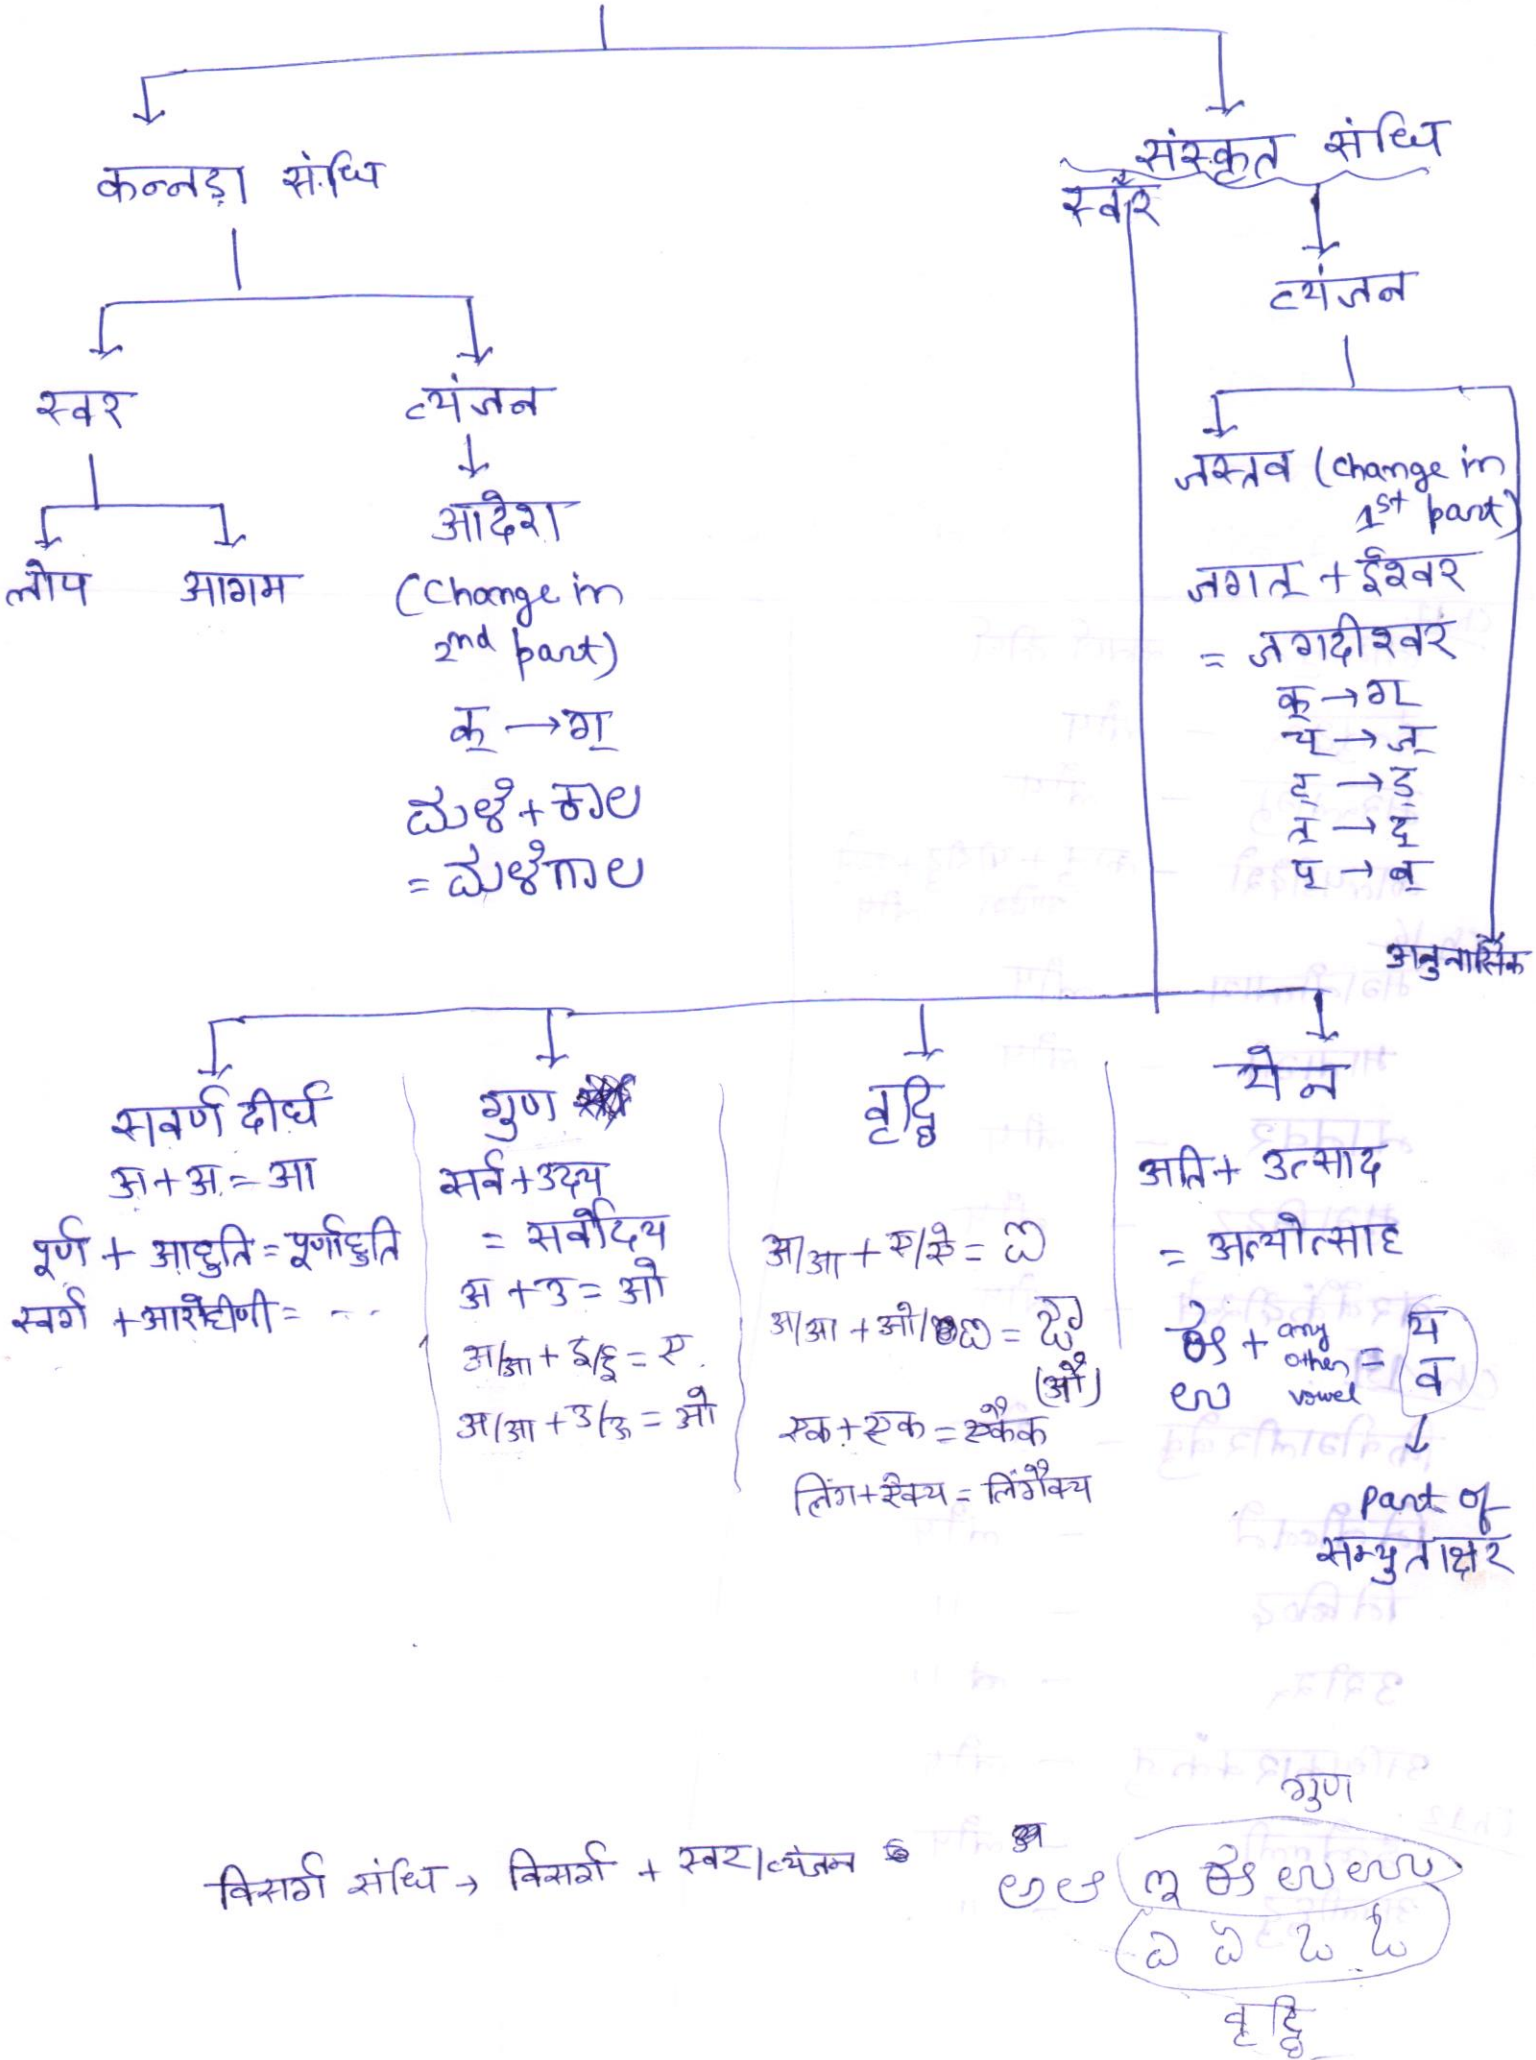 कन्नड़ा संधि
संस्कृत संधि
स्वर
व्यंजन
स्वर
व्यंजन
लोप
आगम
आदेश
(Change in
2nd part)
क् → ग्
ಮಳೆ + ಕಾಲ
= ಮಳೆಗಾಲ
जस्तव (change in
1st part)
जगत् + ईश्वर
= जगदीश्वर
क् → ग्
च् → ज्
ट् → ड्
त् → द्
प् → ब्
अनुनासिक
सवर्ण दीर्घ
अ + अ = आ
पूर्ण + आहुति = पूर्णाहुति
स्वर्ग + आरोहीणी = ...
गुण
सर्व + उदय
= सर्वोदय
अ + उ = ओ
अ/आ + इ/ई = ए
अ/आ + उ/ऊ = ओ
वृद्धि
अ/आ + ए/ऐ = ಐ
अ/आ + ओ/ = ಔ
(औ)
एक + एक = एकैक
लिंग + ऐक्य = लिंगैक्य
येन
अति + उत्साद
= अत्योत्साह
ಈ + any other vowel = य
ಉ व
part of
सम्युताक्षर
विसर्ग संधि → विसर्ग + स्वर/व्यंजन
गुण
ಅ ಆ ಇ ಈ ಉ ಊ
ಎ ಏ ಒ ಓ
वृद्धि